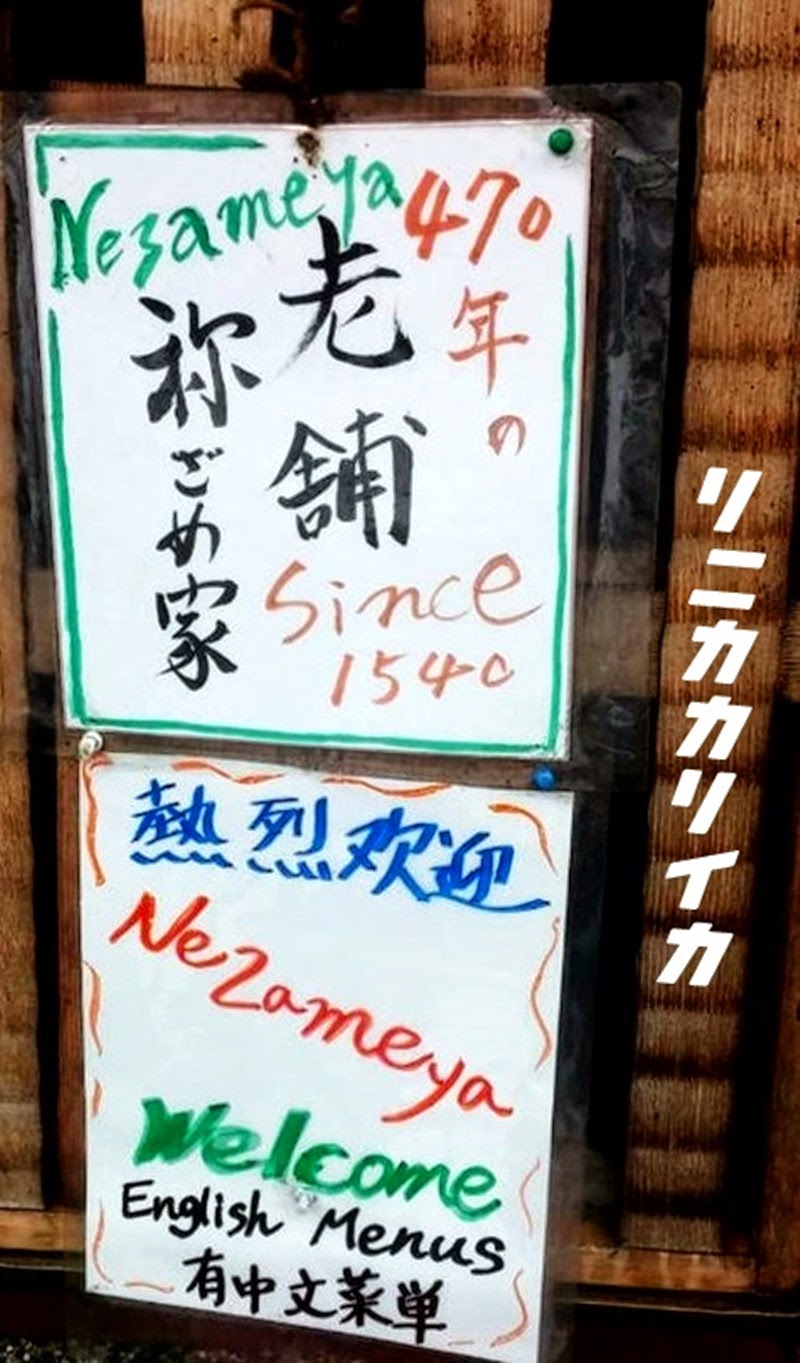 Nezameya
470年の
老舗
祢ざめ家
Since
1540
リニカカリイカ
熱烈欢迎
Nezameya
Welcome
English Menus
有中文菜単